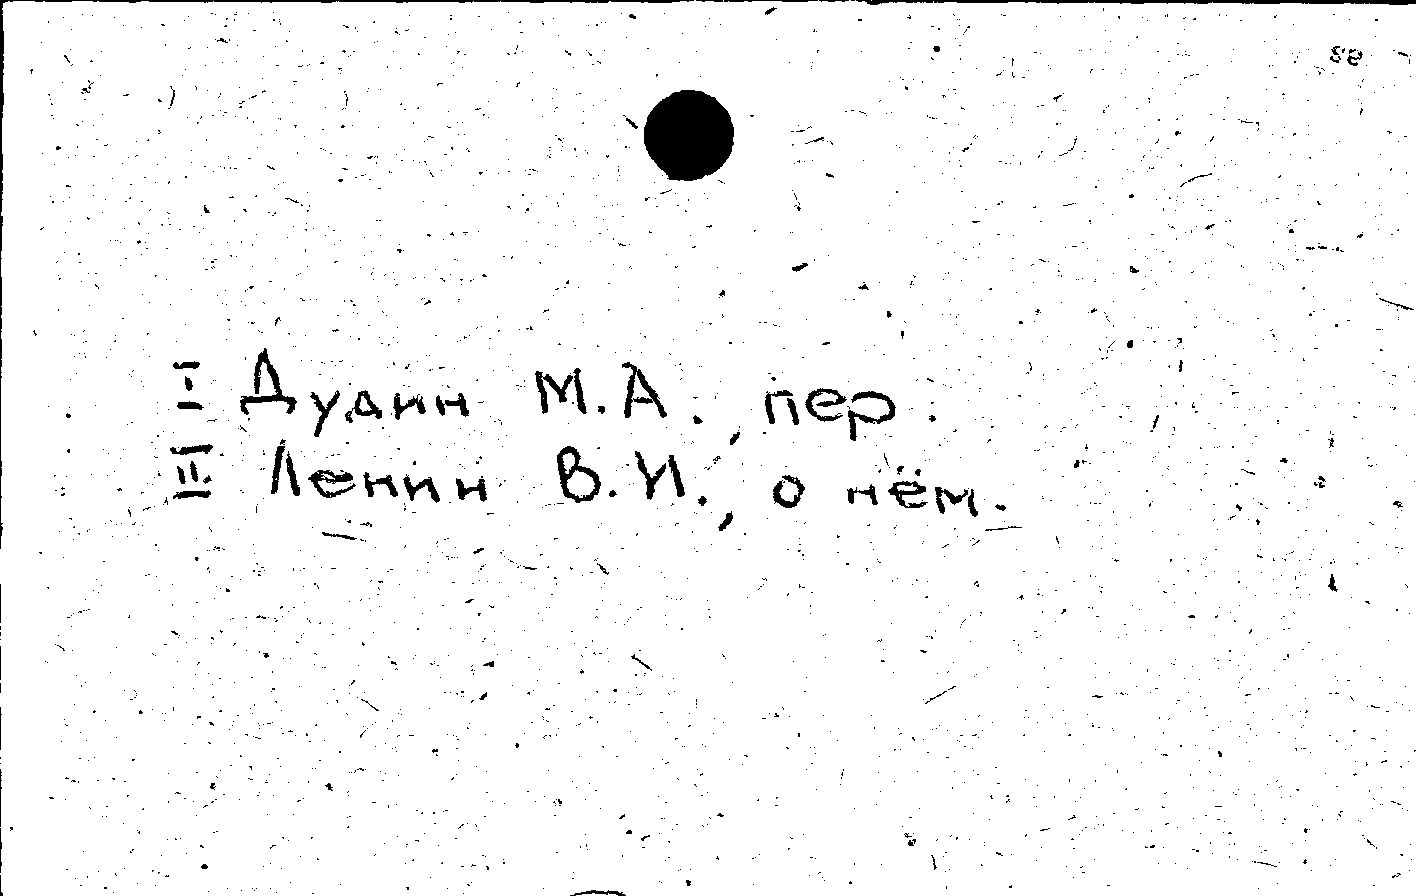 I Дудин М.А., пер.
II. Ленин В.И., о нём.